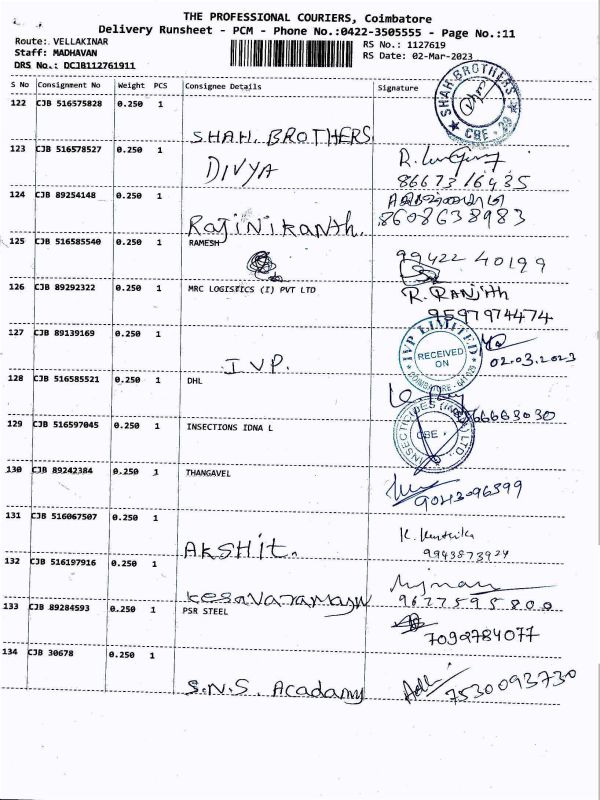 THE PROFESSIONAL COURIERS, Coimbatore
Delivery Runsheet - PCM - Phone No.:0422-3505555 - Page No.:11
Route: VELLAKINAR
RS No.: 1127619
Staff: MADHAVAN
RS Date: 02-Mar-2023
DRS No.: DCJB112761911
S No Consignment No Weight PCS Consignee Details Signature
SHAH BROTHERS
CBE - 29
122 CJB 516575828 0.250 1
SHAH. BROTHERS
123 CJB 516578527 0.250 1
DIVYA
8667316435
124 CJB 89254148 0.250 1
Rajinikanth.
8608638983
125 CJB 516585540 0.250 1 RAMESH
99422 40199
126 CJB 89292322 0.250 1 MRC LOGISTICS (I) PVT LTD
R. RANJith
9597974474
127 CJB 89139169 0.250 1
IVP.
IVP LIMITED
RECEIVED
ON
02.03.2023
128 CJB 516585521 0.250 1 DHL
129 CJB 516597045 0.250 1 INSECTIONS IDNA L
INSECTICIDES (INDIA) LTD.
CBE
130 CJB 89242384 0.250 1 THANGAVEL
131 CJB 516067507 0.250 1
AKSHit.
9943873924
132 CJB 516197916 0.250 1
Kesavaramayn
9677595800
133 CJB 89284593 0.250 1 PSR STEEL
7092784077
134 CJB 30678 0.250 1
S.N.S. Acadamy
7530093730